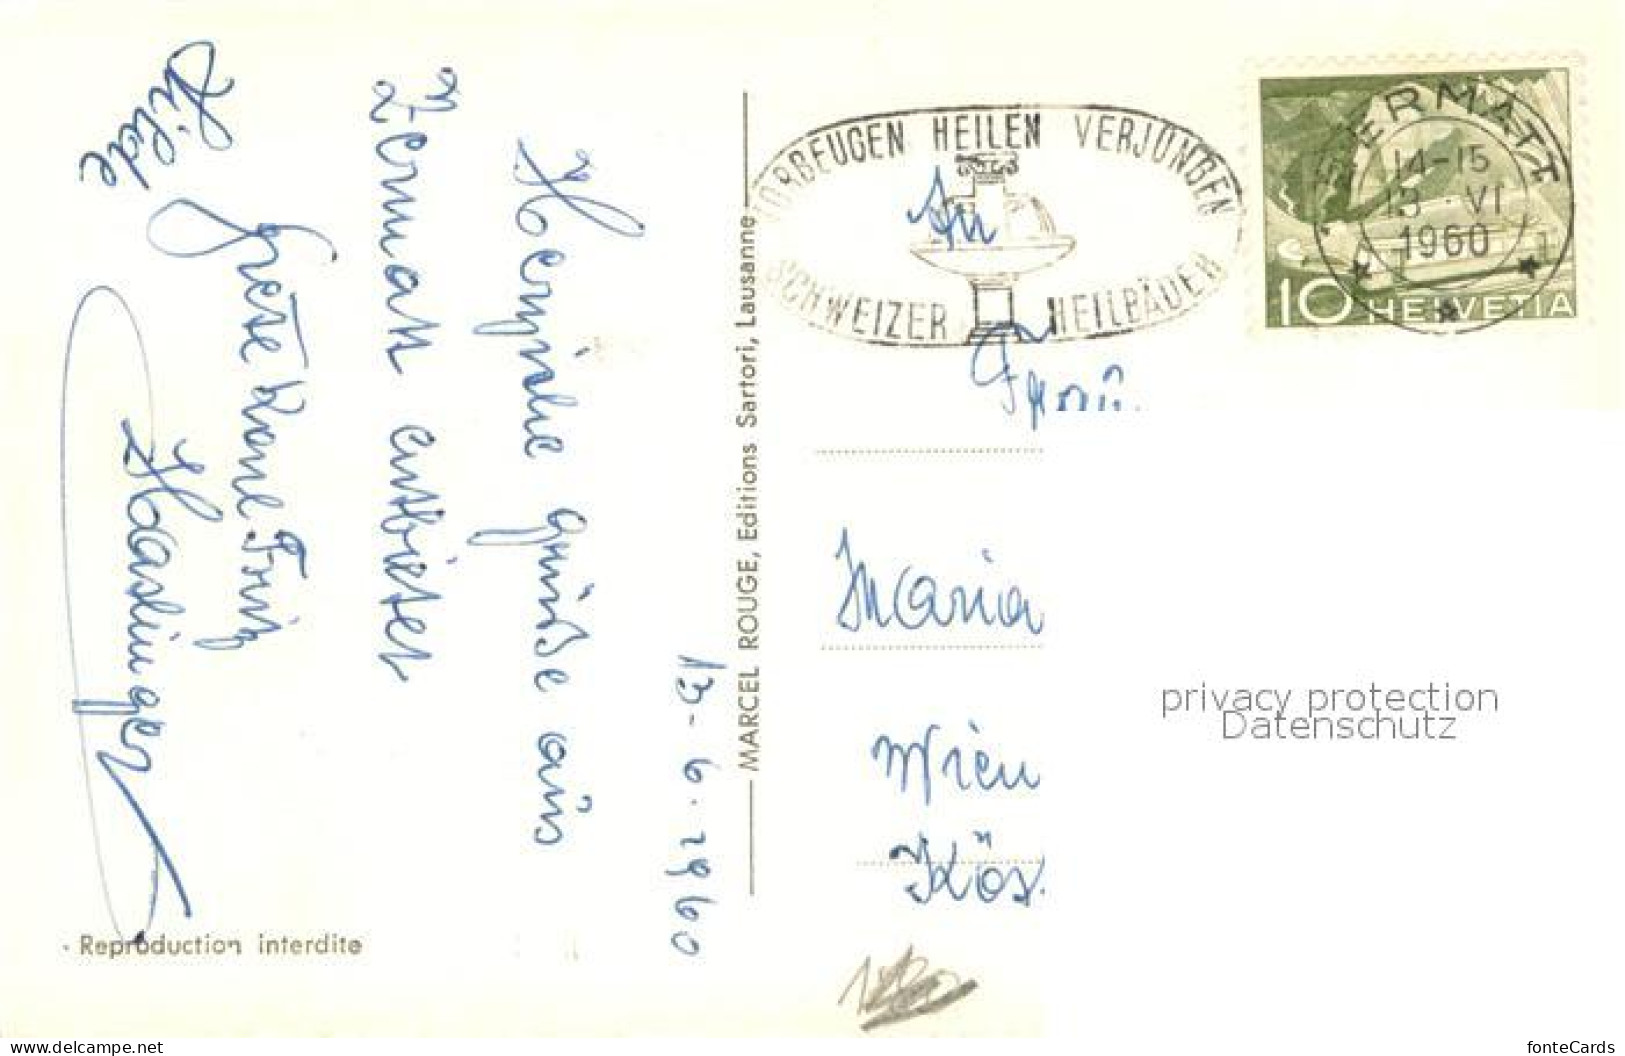 13-6.1960
Herzliche Grüße aus
Zermatt entbietet
Grete Karl Fritz
Hilde
Haslinger
Reproduction interdite
MARCEL ROUGE, Editions Sartori, Lausanne
VORBEUGEN HEILEN VERJÜNGEN
SCHWEIZER HEILBÄDER
ZERMATT
14-15
13.VI
1960
10 HELVETIA
An
Maria
Wien
privacy protection
Datenschutz
www.delcampe.net
fonteCards